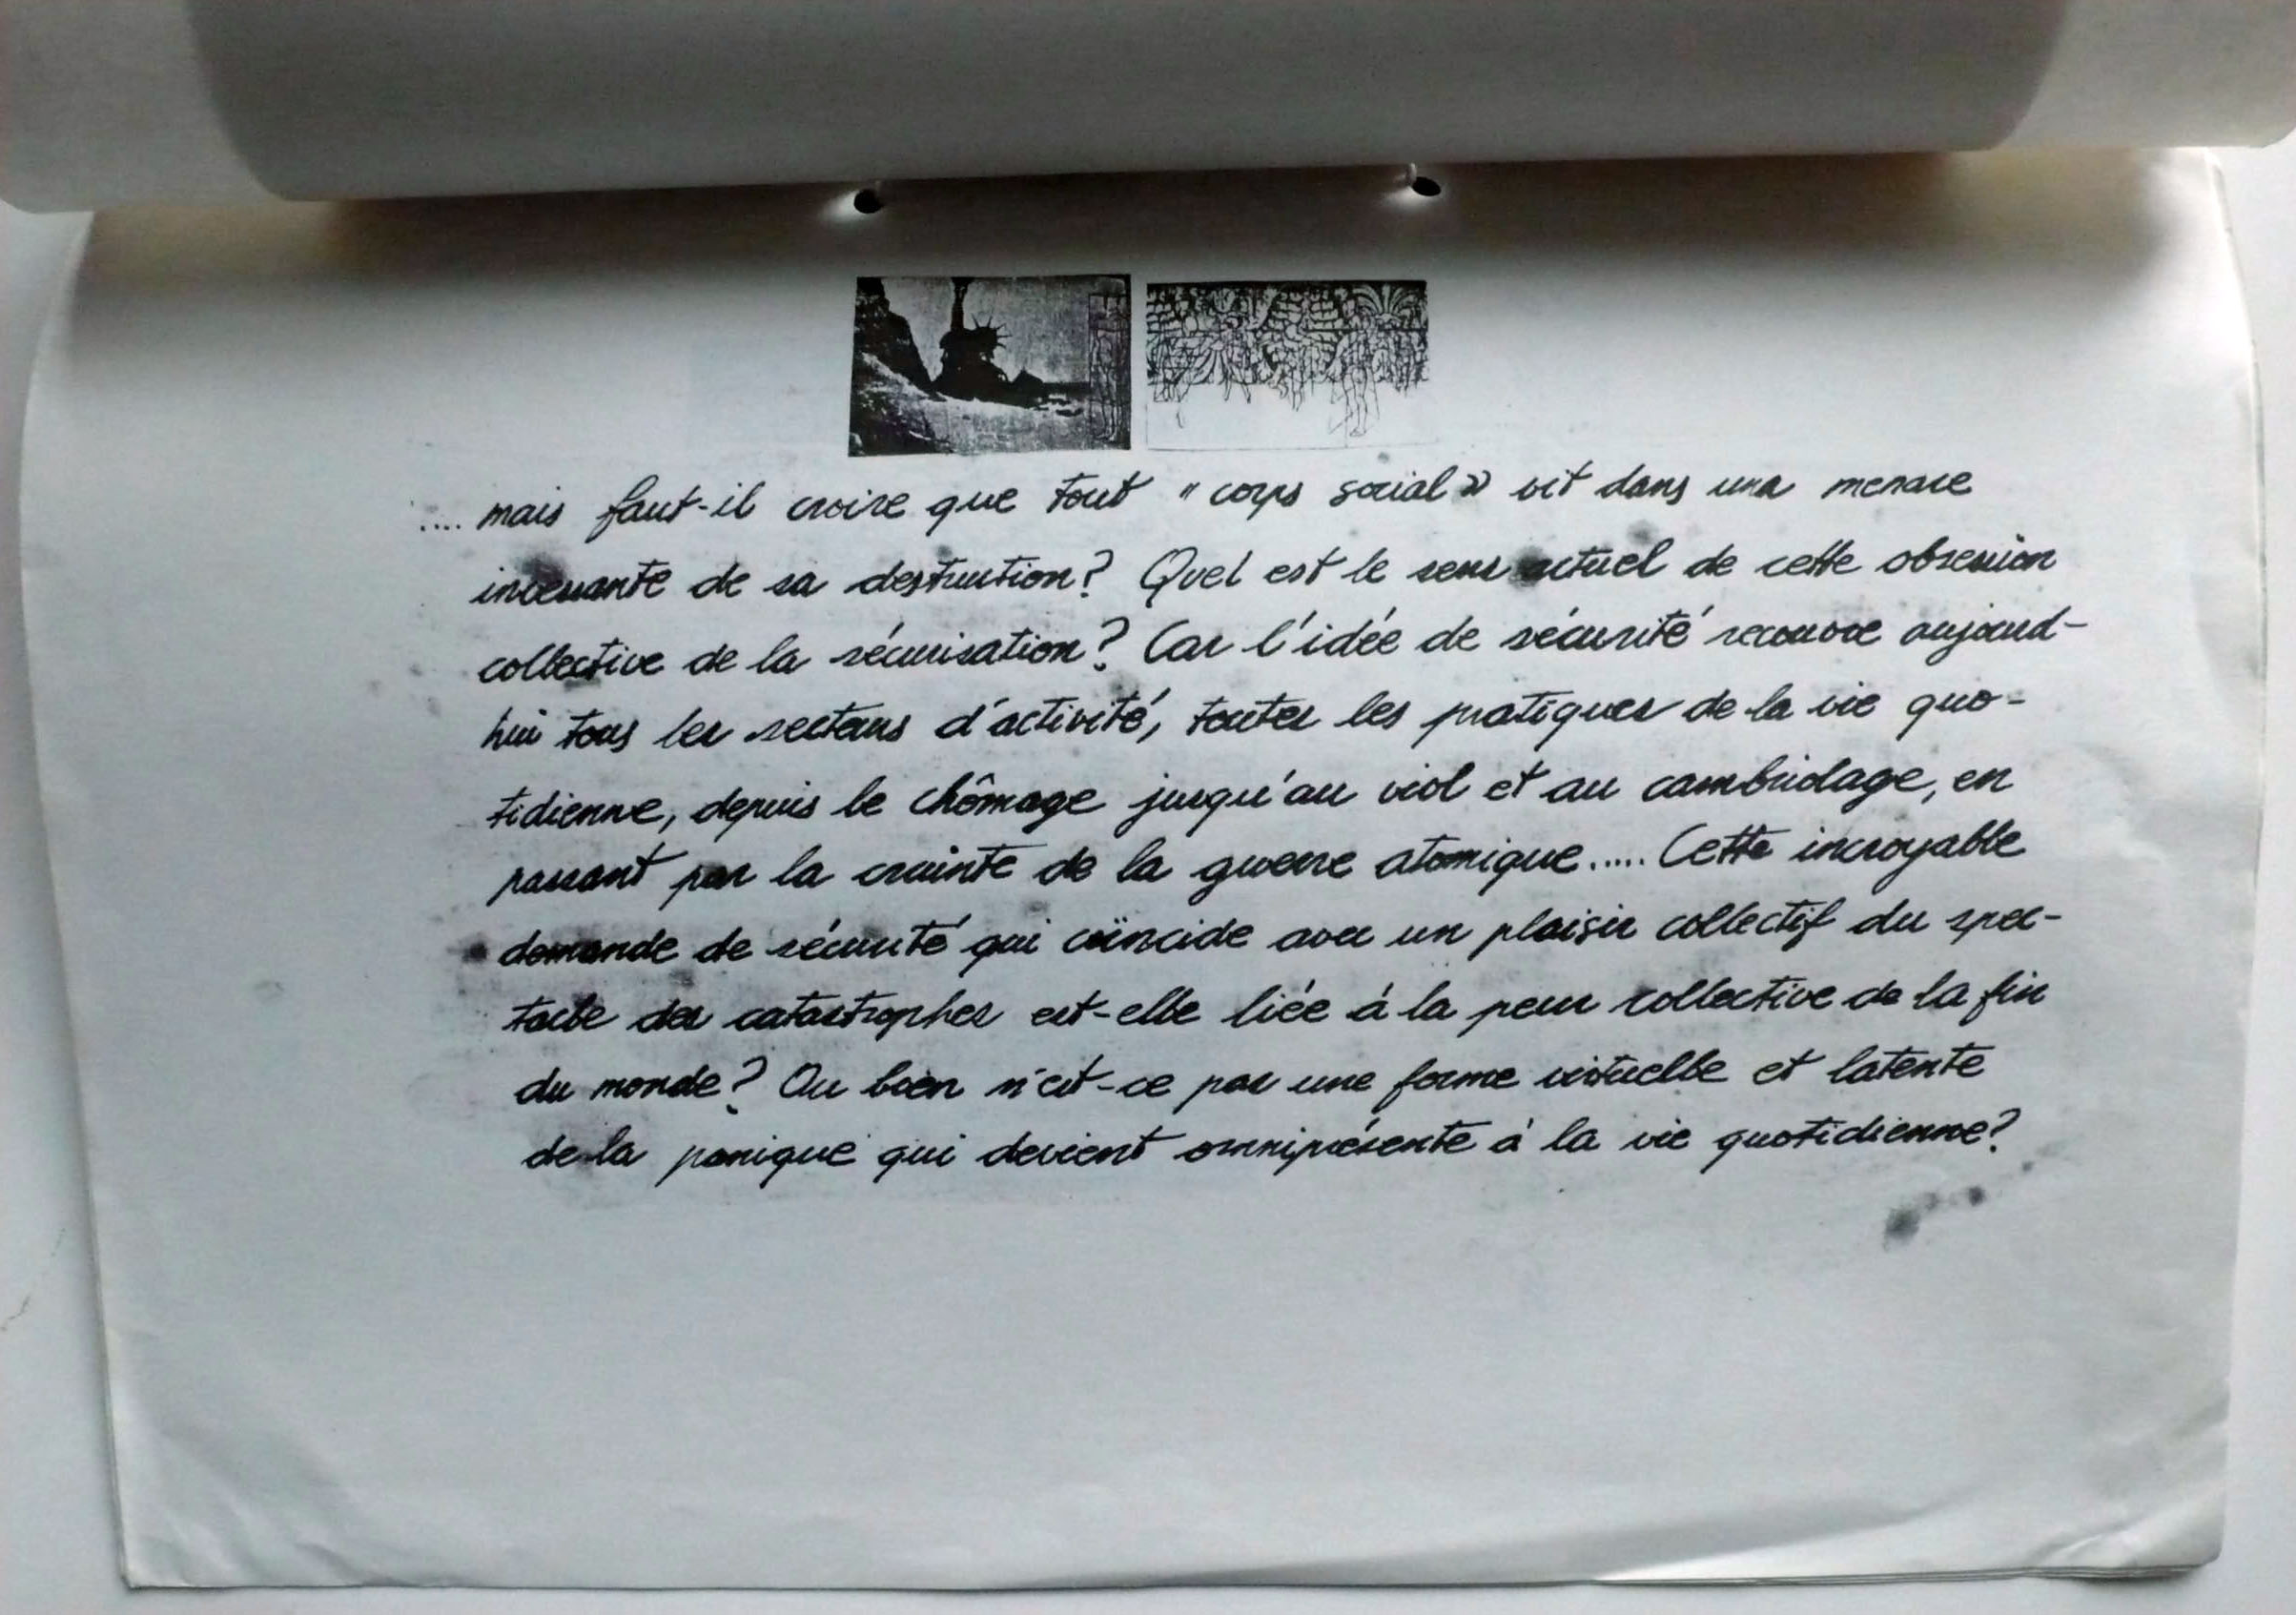 .... mais faut-il croire que tout "corps social" vit dans una menace
incessante de sa destruction? Quel est le sens actuel de cette obsession
collective de la sécurisation? Car l'idée de sécurité recouvre aujourd-
hui tous les secteurs d'activité, toutes les pratiques de la vie quo-
tidienne, depuis le chômage jusqu'au viol et au cambriolage, en
passant par la crainte de la guerre atomique..... Cette incroyable
demande de sécurité qui coïncide avec un plaisir collectif du spec-
tacle des catastrophes est-elle liée à la peur collective de la fin
du monde? Ou bien n'est-ce pas une forme virtuelle et latente
de la panique qui devient omniprésente à la vie quotidienne?